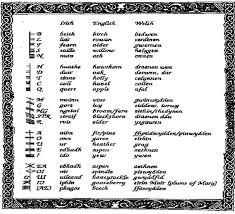 Irish English Welsh
B beith birch bedwen
L luis rowan cerdinen
F fearn alder gwernen
S saille willow helygen
N nion ash onnen
H huathe hawthorn draenen wen
D duir oak derwen, dar
T tinne holly celynnen
C coll hazel collen
Q quert apple afal
M muinn vine gwinwydden
G gort ivy eiddew, iorwg
NG ngetal broom/fern eithin/rhedynen
STR straif blackthorn draenen ddu
R ruis elder ysgawen
A ailm fir/pine ffynidwydden/pinwydden
O onn gorse eithin
U ur heather grug
E edhadh aspen aethnen
I ido yew ywen
EA edhadh aspen aethnen
OI oir spindle piswydden
UI uilland honeysuckle gwyddfid
IO iphin gooseberry eirin Mair (plums of Mary)
(AE) phagos beech ffawydden